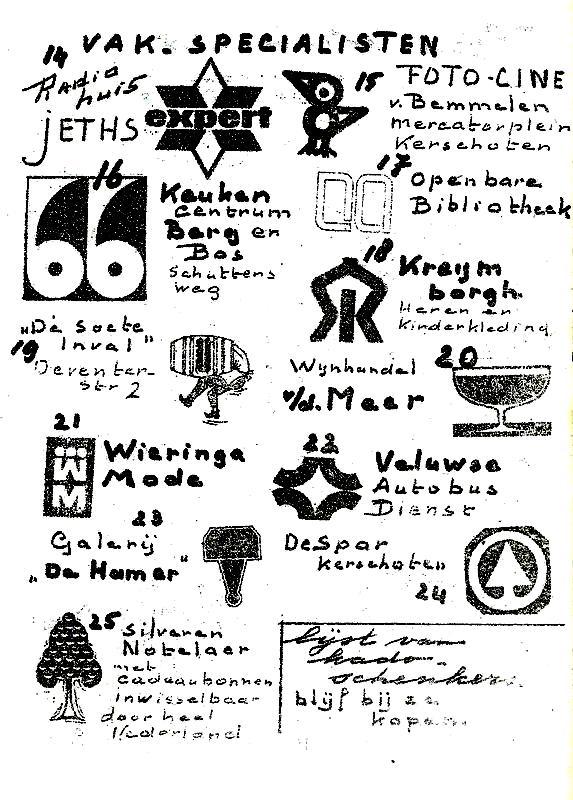 VAK. SPECIALISTEN
14
Radio
huis
JETHS
expert
15
FOTO-CINE
v. Bemmelen
mercatorplein
Kerschoten
16
Keuken
centrum
Berg en
Bos
Schuttens
weg
17
Openbare
Bibliotheek
18
Kreym
borgh
Heren en
Kinderkleding
19
„De Soete
Inval"
Deventer-
str 2
20
Wijnhandel
v/d. Meer
21
Wieringa
Mode
WM
22
Veluwse
Autobus
Dienst
23
Galerij
„De Hamer"
24
De Spar
Kerschoten
25
Silveren
Notelaer
met
cadeaubonnen
inwisselbaar
door heel
Nederland
lijst van
kado-
schenkers
blijf bij ze
kopen